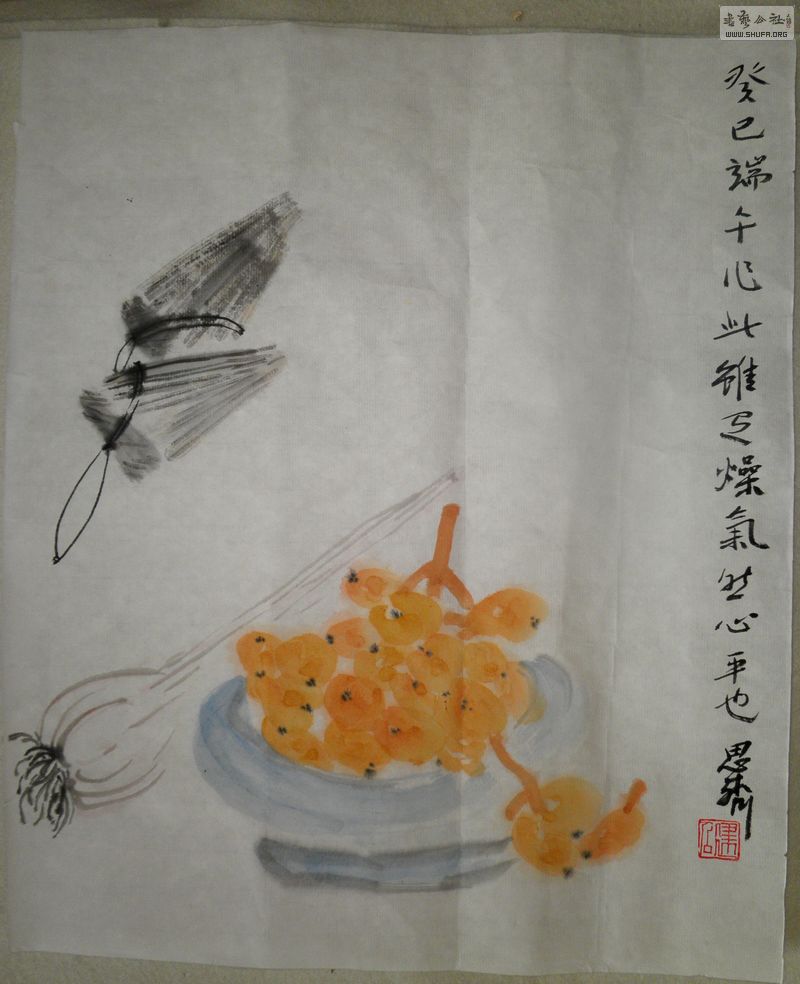 書藝公社
WWW.SHUFA.ORG
癸巳端午作此雖乏燥氣然心平也
思齊